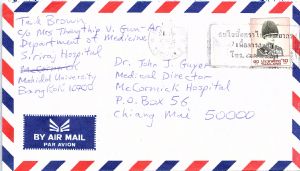 Terk Brown
c/o Mrs Thaythip V. Gun-Ari
Department of Medicine
Siriraj Hospital
McCormick
Mahidol University
Bangkok 10700
Dr. John J. Guyer
Medical Director
McCormick Hospital
P.O. Box 56
Chiang Mai 50000
BY AIR MAIL
PAR AVION